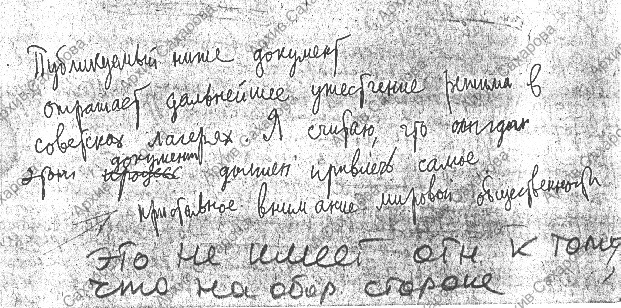 Публикуемый ниже документ
отражает дальнейшее ужесточение режима в
советских лагерях. Я считаю, что
этот документ должен привлечь самое
пристальное внимание мировой общественности
это не имеет отн к тому
что на обор стороне